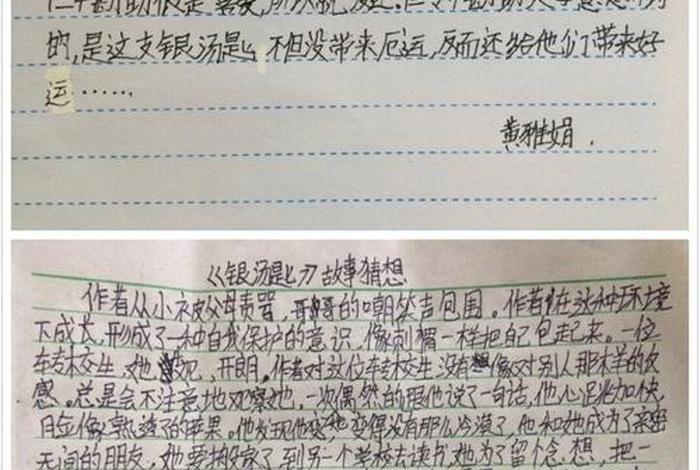 的,是这支银汤匙,不但没带来厄运,反而还给他们带来好
运……
黄雅娟.
《银汤匙》故事猜想
作者从小被父母责骂,哥哥的嘲笑声包围。作者在这种环境
下成长,形成了一种自我保护的意识,像刺猬一样把自己包起来。一位
转校生,她 开朗,作者对这位转校生没有像对别人那样的反
感。总是会不注意地观察她,一次偶然的跟他说了一句话,他心跳加快,
脸像熟透了的苹果。他发现他 变得没有那么冷漠了,他和她成为了亲密
无间的朋友,她要搬家了,到另一个学校去读书,她为了留个念想,把一